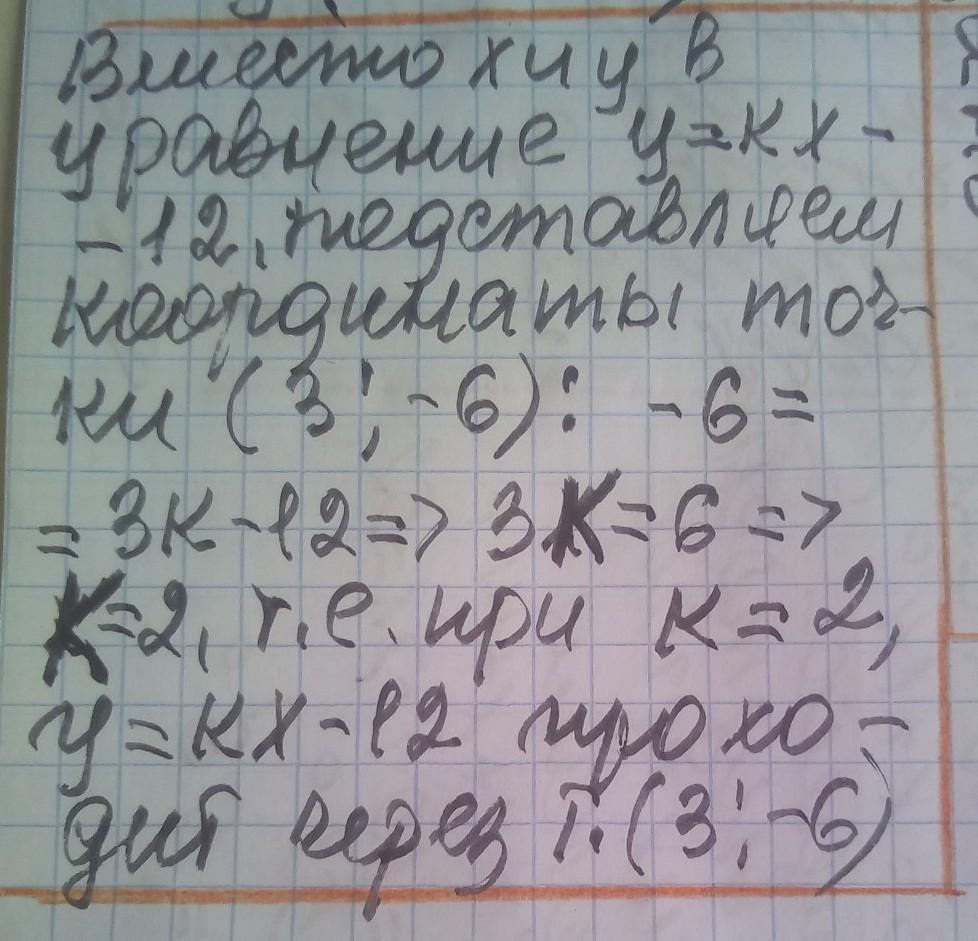 Вместо х и у в
уравнение у=кх-
-12, подставляем
координаты точ-
ки (3; -6): -6=
= 3к-12=> 3к=6 =>
к=2, т.е. при к=2,
у=кх-12 прохо-
дит через т.(3; -6)